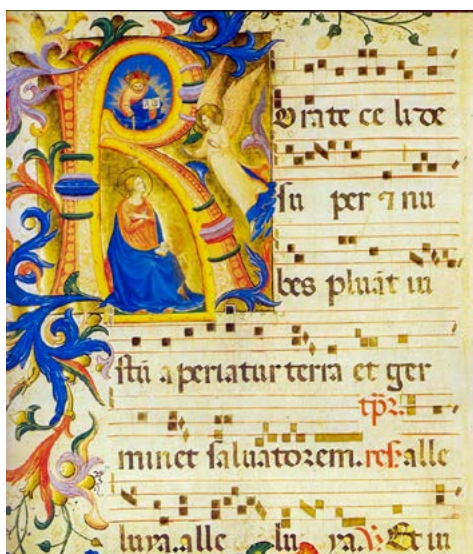 Rorate ce li de
su per ⁊ nu
bes pluāt iu
stū aperiatur terra et ger
tp̄r.
minet saluatorem. res. alle
luya..alle lu ya. ℣ Et iu